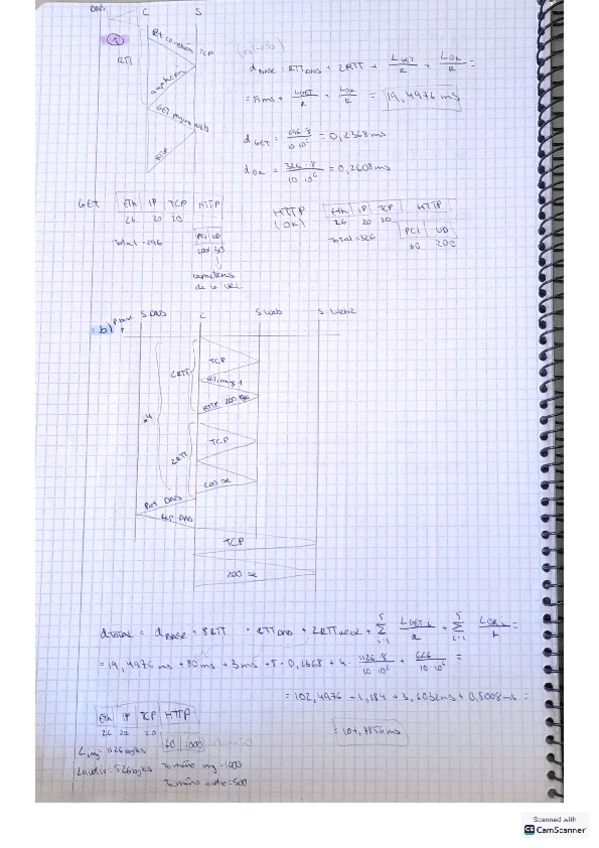 DNS C S
1
RTT
TCP
GET
HTTP
d BASE = RTT DNS + 2RTT + L GET / R + L OK / R =
= + L GET / R + L OK / R = 19,4976 ms
d GET = 296·8 / 10·10⁶ = 0,2368 ms
d OK = 326·8 / 10·10⁶ = 0,2608 ms
GET Eth IP TCP HTTP
26 20 20
Total = 296
PCI UD
200 30
de la URL
HTTP (OK) Eth IP TCP HTTP
26 20 20
Total = 326
PCI UD
60 200
b) S DNS C S Web S Web2
2RTT
TCP
HTTP 200 OK
x4
2RTT
TCP
200 OK
Pet DNS
Rep DNS
TCP
200 OK
d TOTAL = d BASE + 8RTT + RTT DNO + 2RTT + Σ L GET / R + Σ L OK / R =
= 19,4976 ms + 80 ms + 3 ms + 5 · 0,2368 + 4 · 1126·8 / 10·10⁶ + / 10·10⁶ =
= 102,4976 + 1,184 + 3,6032 ms + 0,5008 ms =
Eth IP TCP HTTP
26 20 20 60 1000
L img = 1126 bytes
L audio = 526 bytes
Tamaño img = 1000
Tamaño audio = 500
Scanned with
CS CamScanner